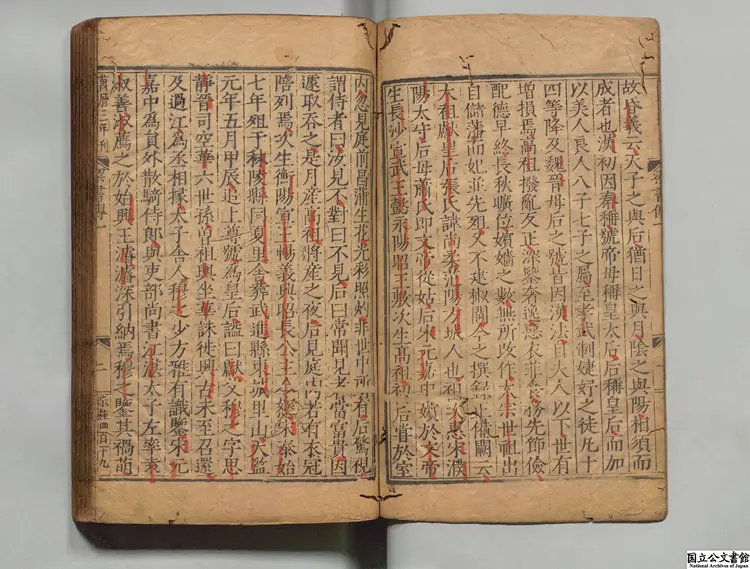 故昏義云天子之與后猶日之與月陰之與陽相須而
成者也漢初因秦稱號帝母稱皇太后后稱皇后而加
以美人良人八子七子之屬至孝武制婕妤之徒凡十
四等降及魏晉母后之號皆因漢法自夫人以下世有
增損焉高祖撥亂反正深鑒奢逸惡衣菲食務先節儉
配德早終長秋曠位嬪嬙之數無所改作太宗世祖出
自儲藩而妃並先殂又不建椒閫今之撰錄止備闕云
太祖獻皇后張氏諱尚柔范陽方城人也祖次惠宋濮
陽太守后母蕭氏即文帝從姑后宋元嘉中嬪於文帝
生長沙宣武王懿永陽昭王敷次生高祖初后嘗於室
内忽見庭前昌蒲生花光彩照灼非世中所有后驚視
謂侍者曰汝見不對曰不見后曰常聞見者當富貴因
遽取吞之是月産高祖將産之夜后見庭内若有衣冠
陪列焉次生衡陽宣王暢義興昭長公主令嫕宋泰始
七年殂于秣陵縣同夏里舍葬武進縣東城里山天監
元年五月甲辰追上尊號爲皇后謚曰獻父穆之字思
靜晉司空華六世孫曾祖輿坐華誅徙興古未至召還
及過江爲丞相掾太子舍人穆之少方雅有識鑒宋元
嘉中爲員外散騎侍郎與吏部尚書江湛太子左率袁
淑善淑薦之於始興王濬濬深引納焉穆之鑒其禍萌
萬曆三年刊
梁書傳一
二
国立公文書館
National Archives of Japan